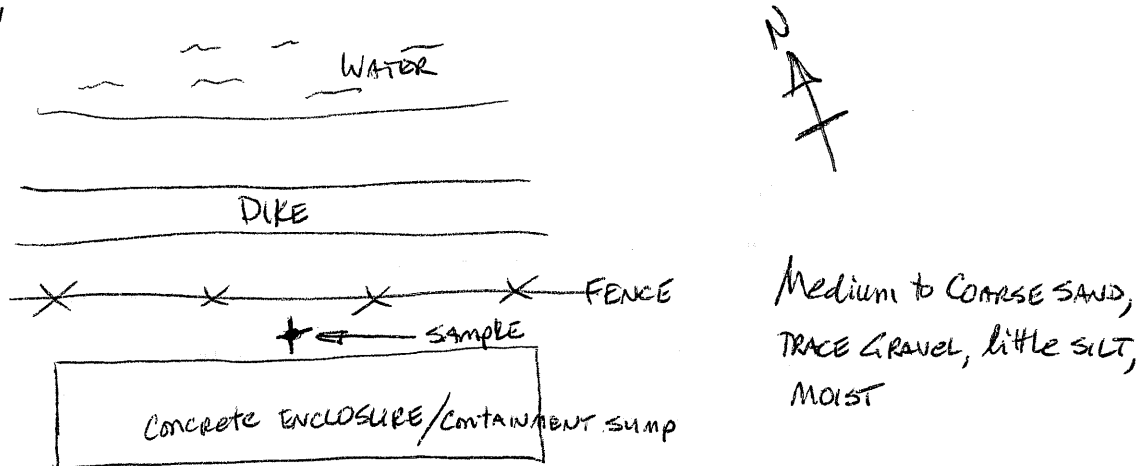 N
WATER
DIKE
FENCE
SAMPLE
Concrete ENCLOSURE/CONTAINMENT SUMP
Medium to COARSE SAND,
TRACE GRAVEL, little SILT,
MOIST